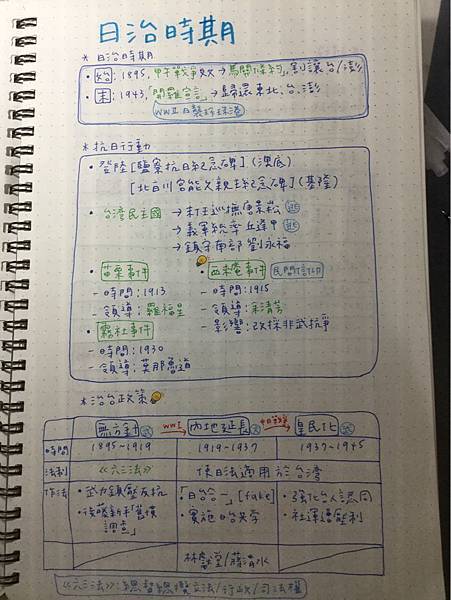 日治時期
* 日治時期
• 始: 1895, 甲午戰爭敗→馬關條約, 割讓台/澎
• 末: 1943,「開羅宣言」→歸還東北、台、澎
WWII 日襲珍珠港
* 抗日行動
• 登陸[鹽寮抗日紀念碑](澳底)
[北白川宮能久親王紀念碑](基隆)
• 台灣民主國 →末任巡撫唐景崧 逃
→義軍統率丘逢甲 逃
→鎮守南部劉永福
• 苗栗事件
– 時間: 1913
– 領導: 羅福星
• 西來庵事件 民間信仰
– 時間: 1915
– 領導: 余清芳
– 影響: 改採非武抗爭
• 霧社事件
– 時間: 1930
– 領導: 莫那魯道
* 治台政策
無方針 WWI 內地延長 中日戰爭 皇民化
時間 1895~1919 1919~1937 1937~1945
法制 《六三法》 使日法適用於台灣
作法 • 武力鎮壓反抗 •「日台合一」[fake] • 強化台人認同
• 後藤新平「舊慣調查」 • 實施日台共學 • 社運遭壓制
林獻堂/蔣渭水
《六三法》: 總督總攬立法/行政/司法權